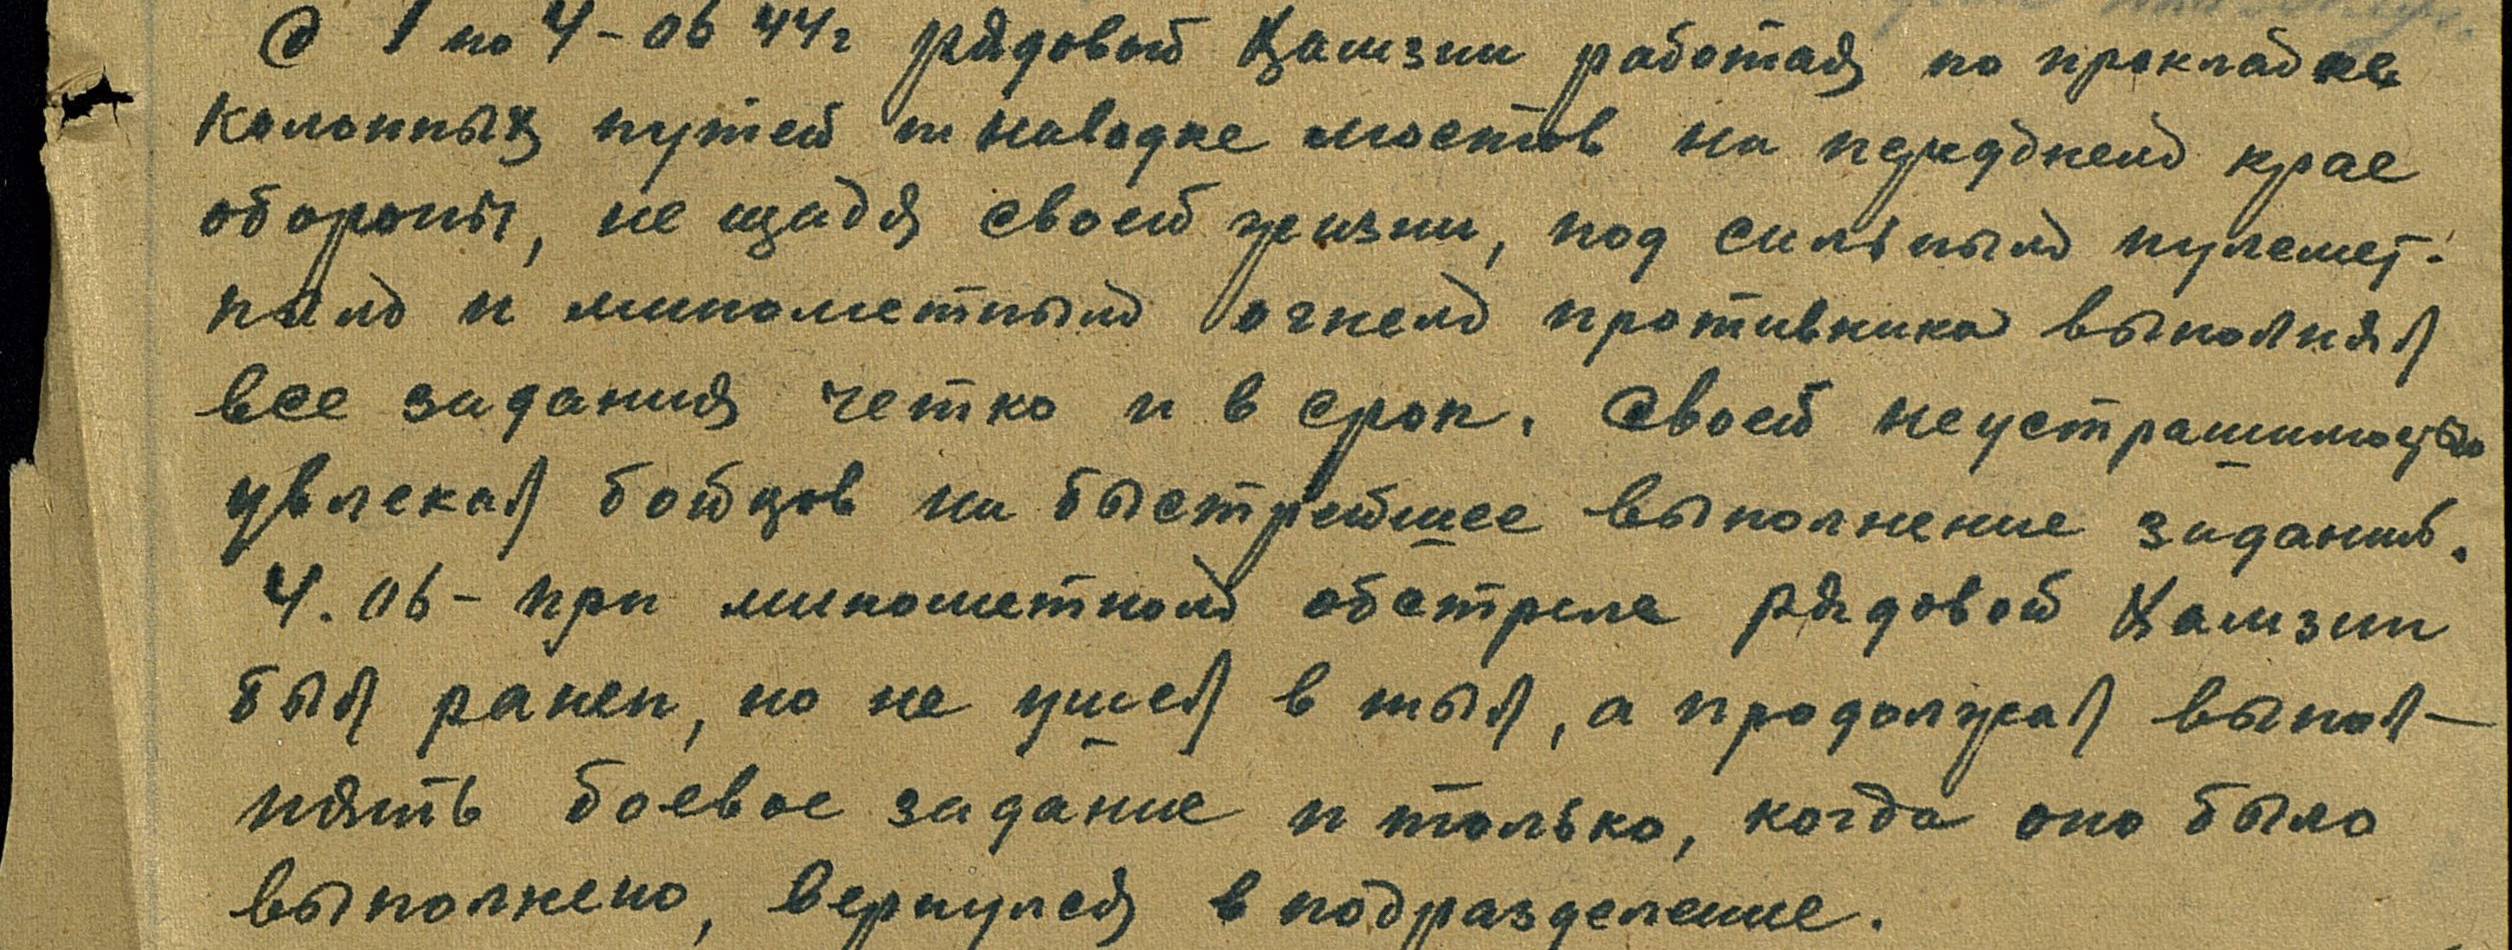 С 1 по 4-06 44г рядовой Хамзин работая по прокладке
колонных путей и наводке мостов на переднем крае
обороны, не щадя своей жизни, под сильным пулемет-
ным и минометным огнем противника выполнял
все задания четко и в срок. Своей неустрашимостью
увлекал бойцов на быстрейшее выполнение заданий.
4.06- при минометном обстреле рядовой Хамзин
был ранен, но не ушел в тыл, а продолжал выпол-
нять боевое задание и только, когда оно было
выполнено, вернулся в подразделение.